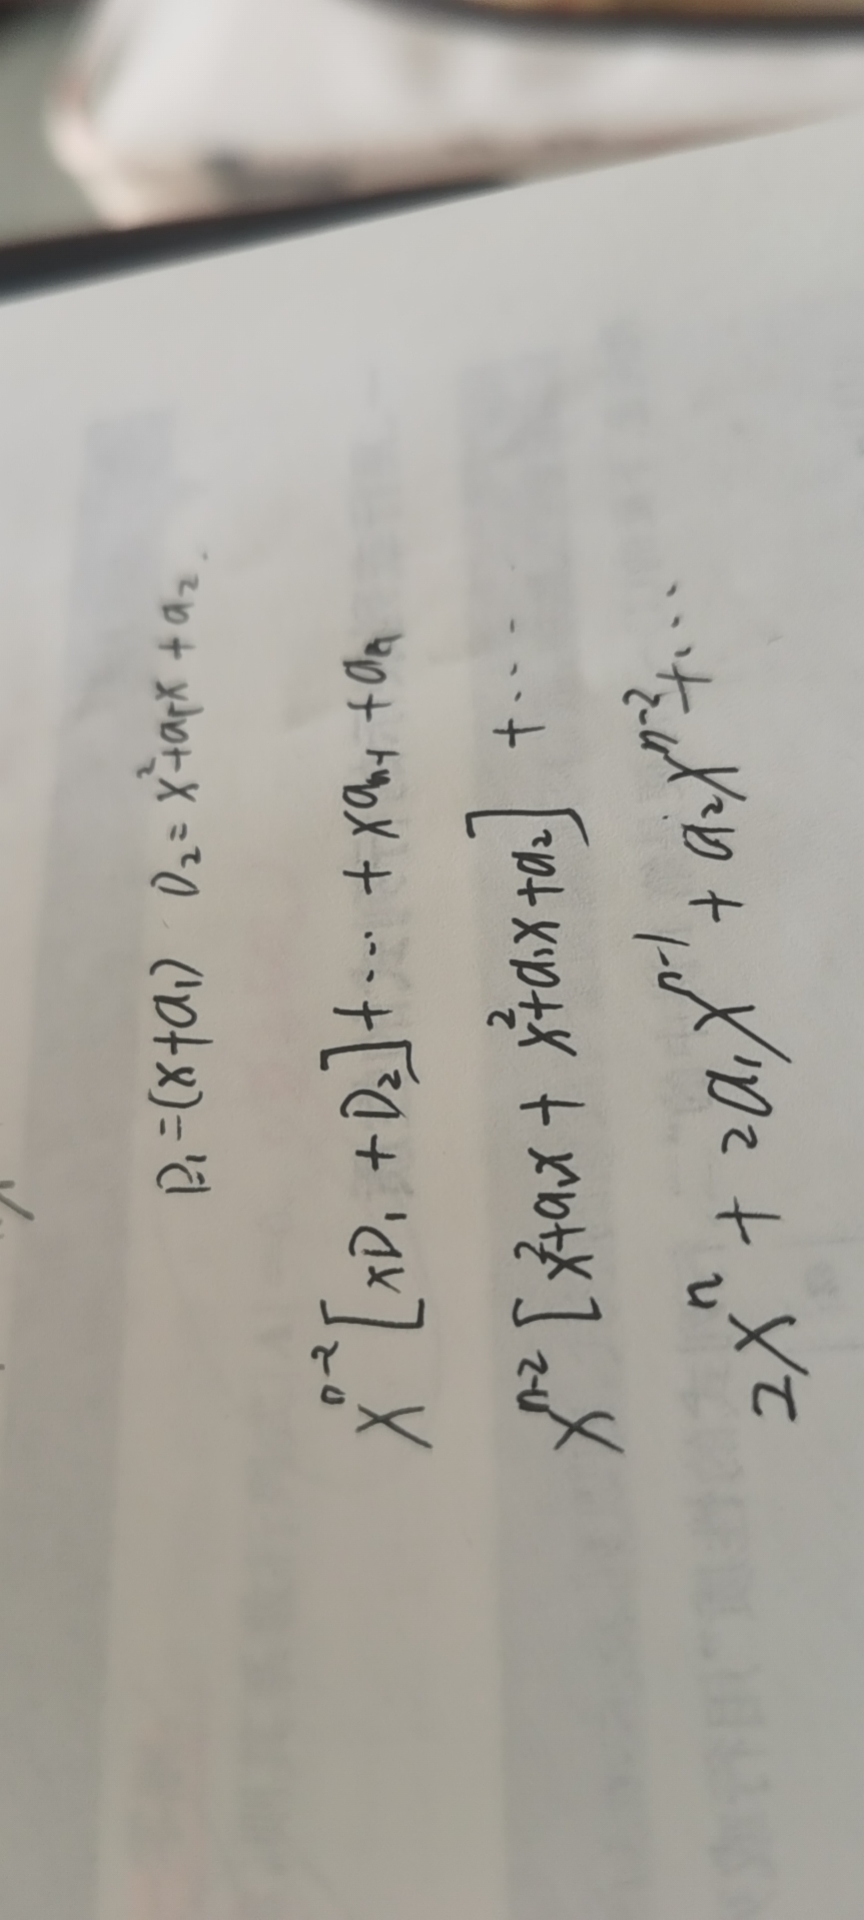 D₁=(x+a₁) D₂=x²+a₁x+a₂.
xⁿ⁻²[xD₁+D₂]+⋯+xaₙ₋₁+aₙ
xⁿ⁻²[x²+a₁x+x²+a₁x+a₂]+⋯
2xⁿ+2a₁xⁿ⁻¹+a₂xⁿ⁻²+⋯